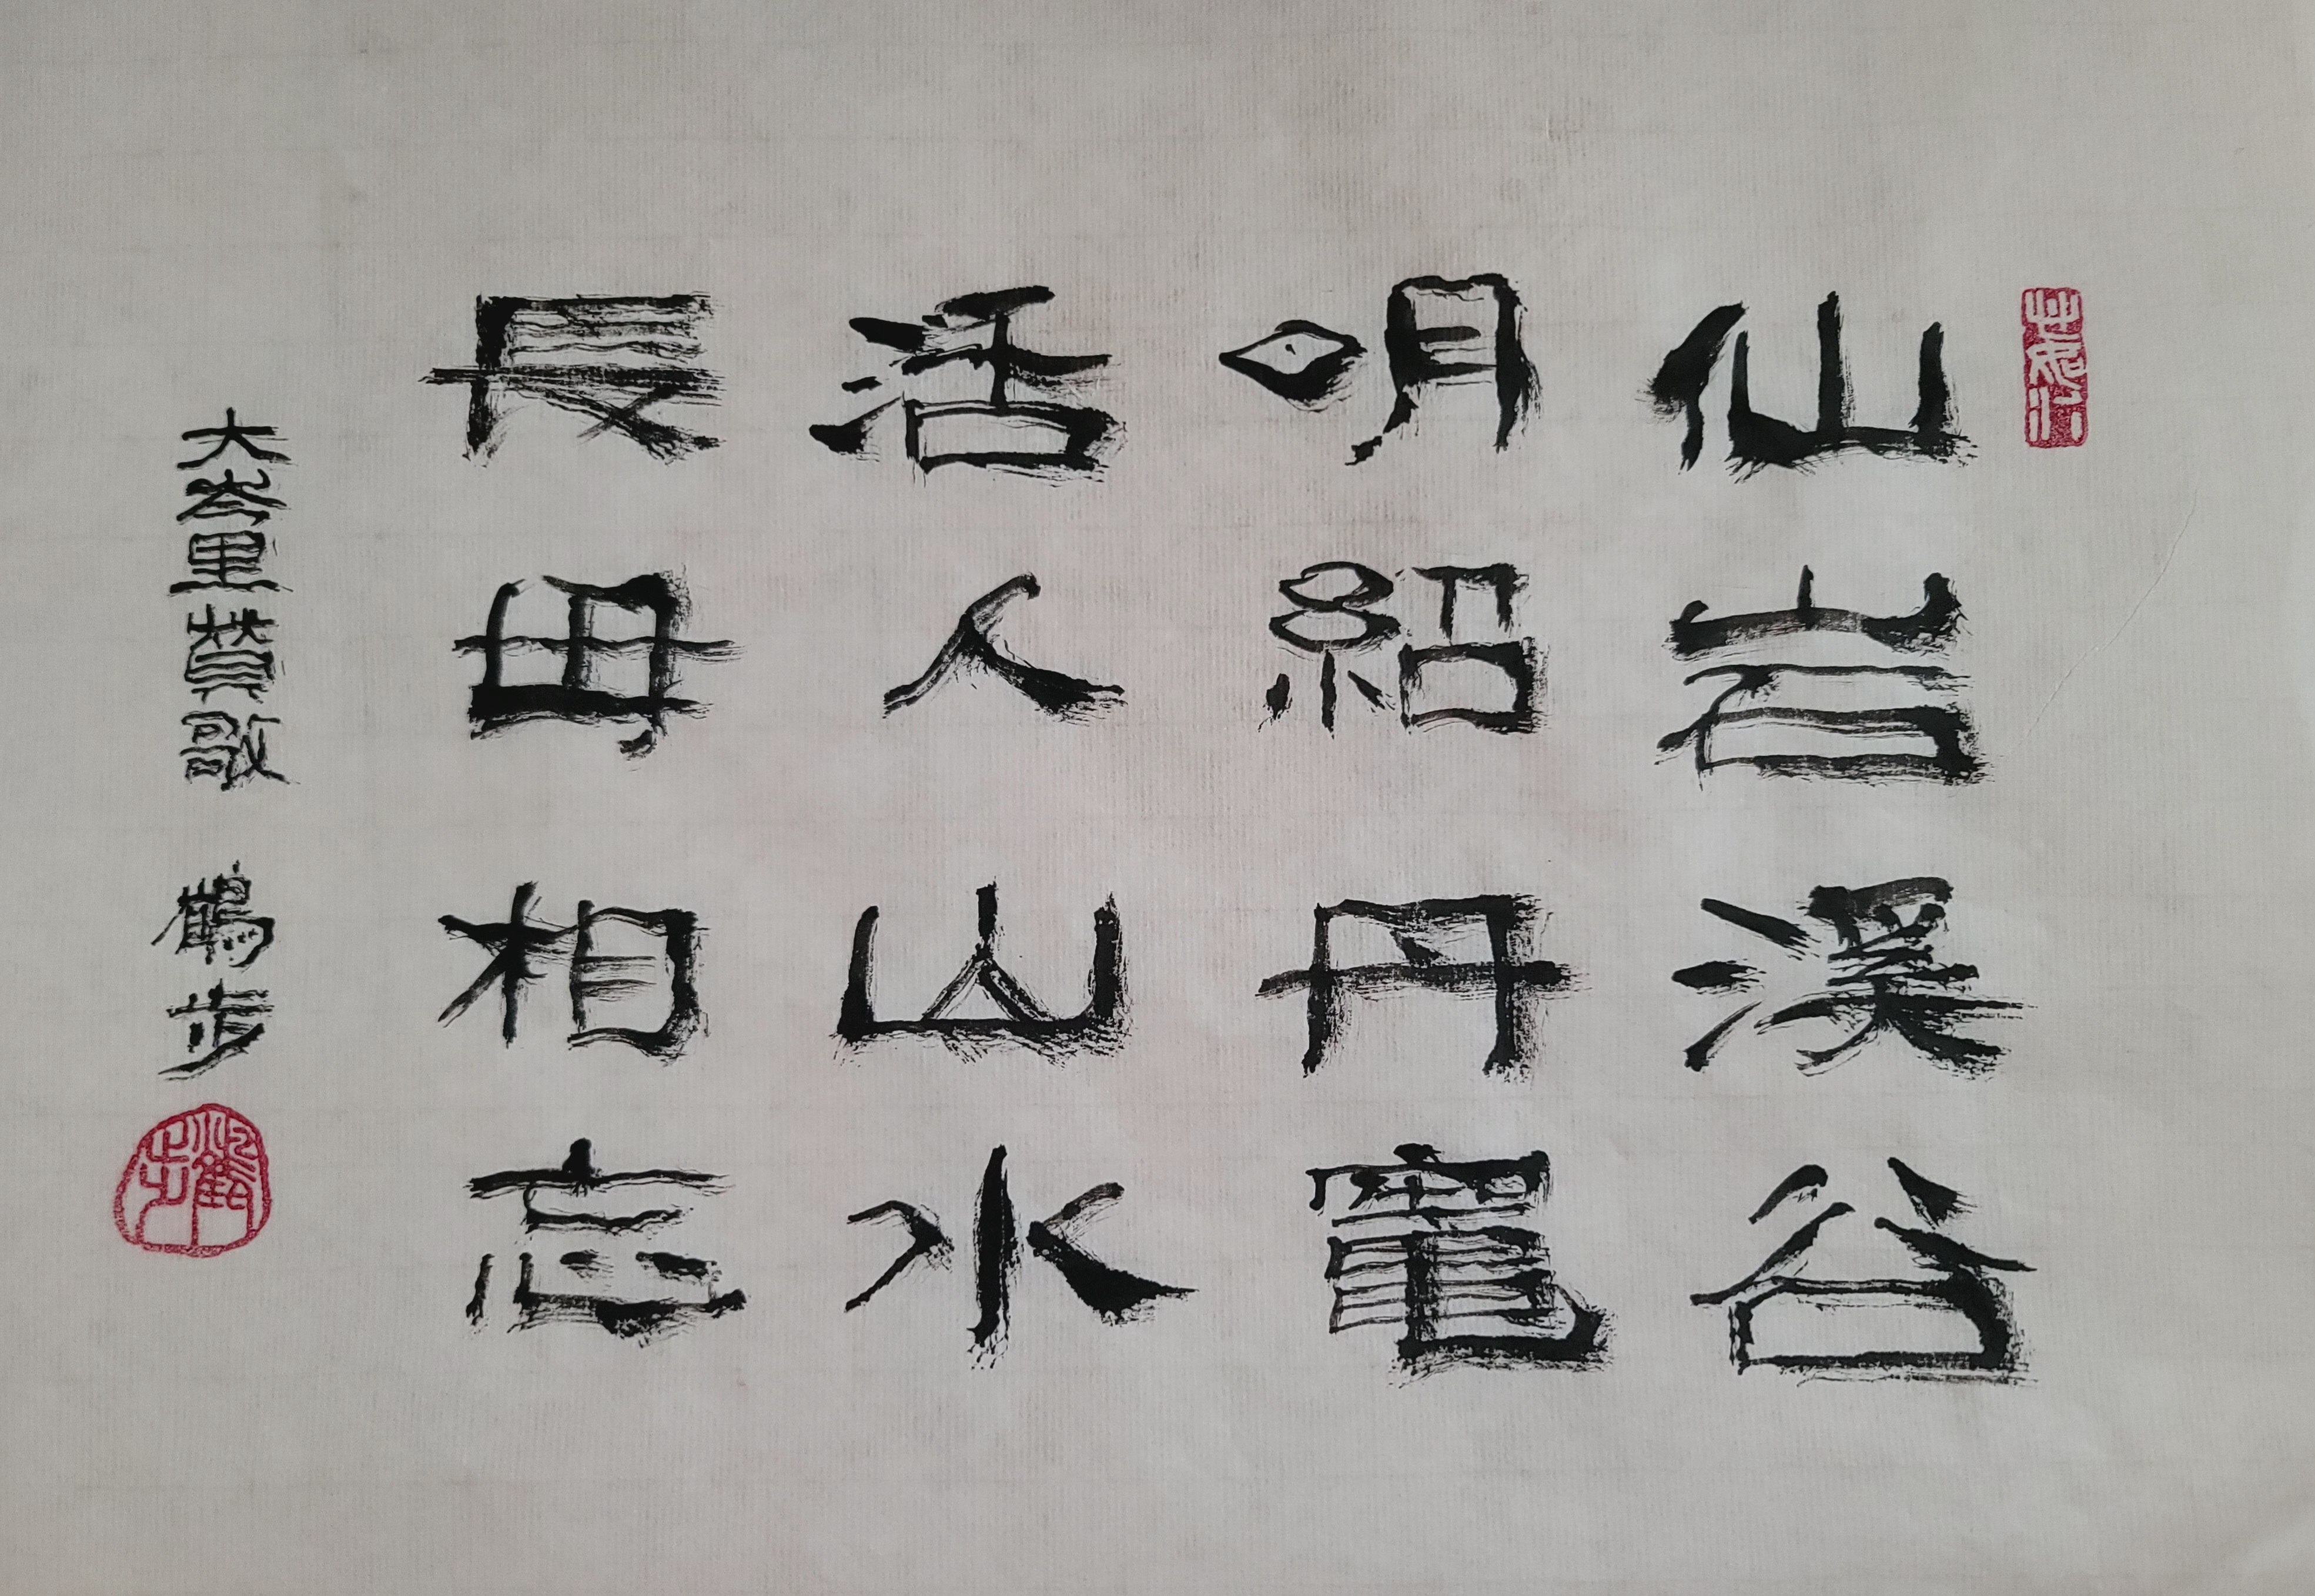 仙岩溪谷
明紹丹竈
活人山水
長毋相忘
大岑里贊歌 鶴步